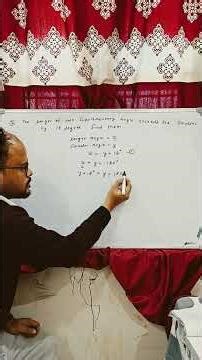 The larger of two supplementary angle exceeds the smaller
by 18 degree find them
larger angle = x
smaller angle = y
x - y = 18°
x + y = 180°